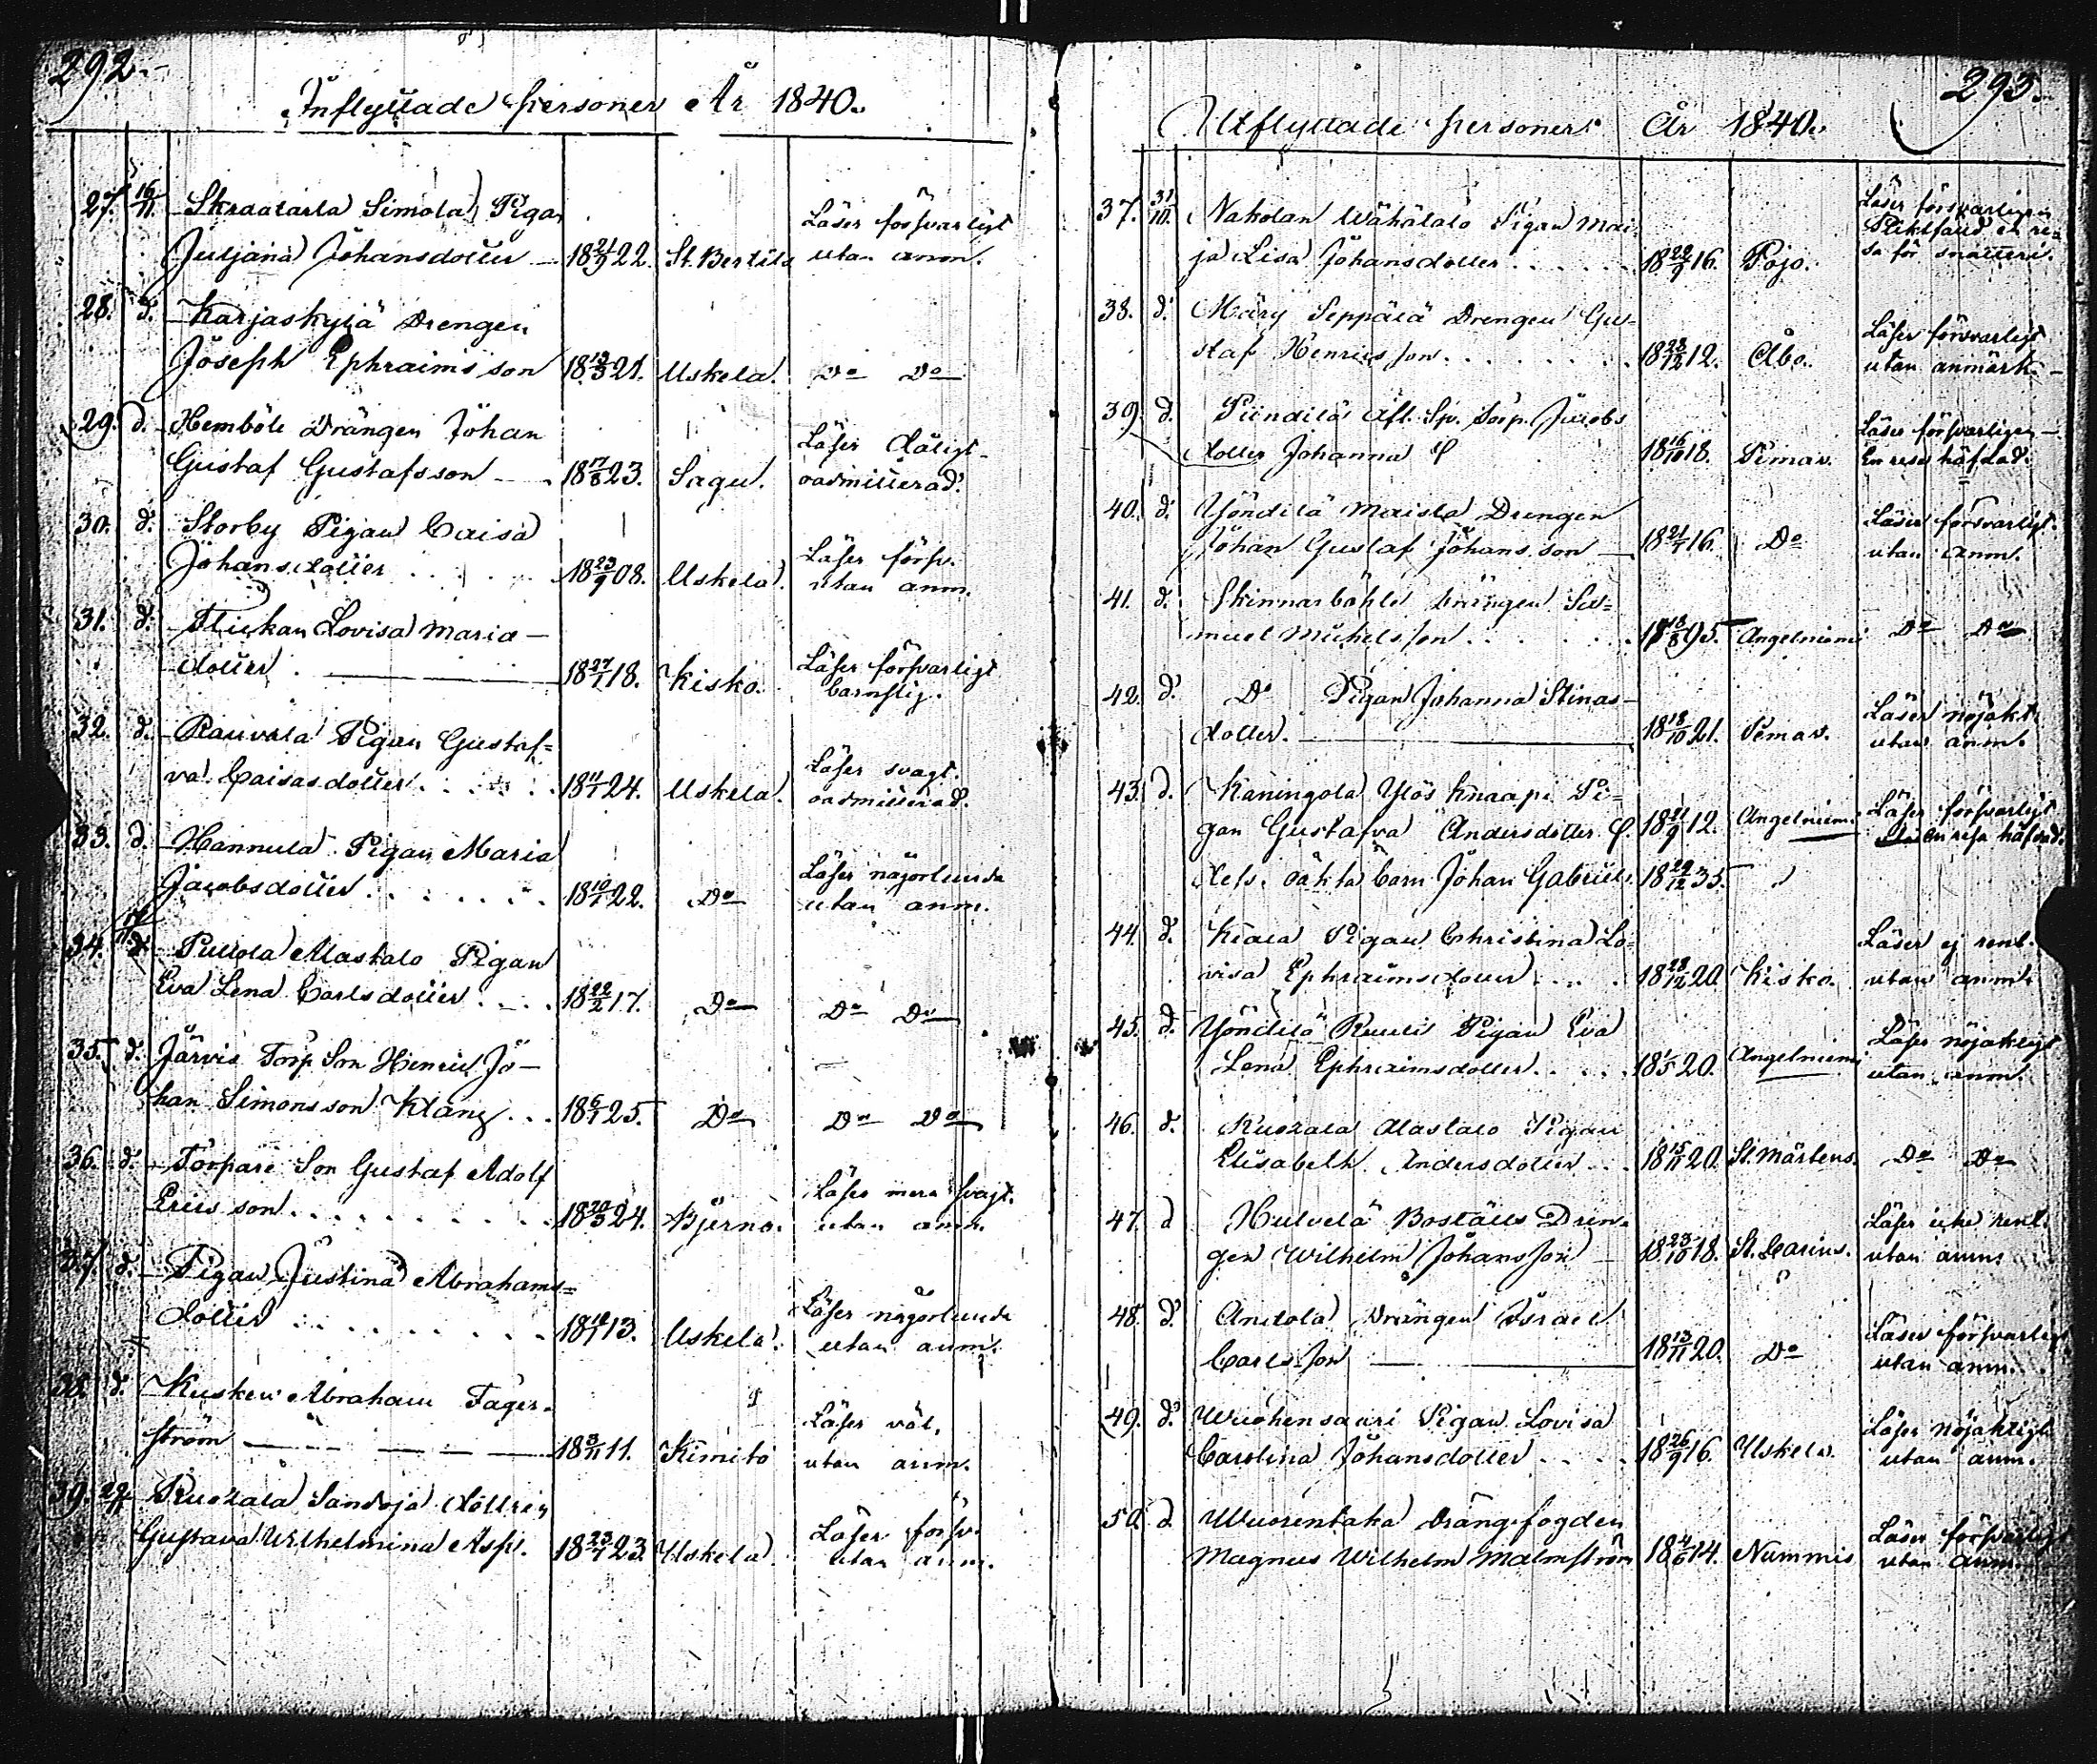 292.
Inflyttade personer År 1840.
27. 16/11. Skraatarla Simola, Pigan Läser försvarligt
Juljana Johansdotter 18 21/9 22. St. Bertils utan anm.
28. d. Karjaskylä Drengen
Joseph Ephraims son 18 19/3 21. Uskela. Do Do
29. d. Hemböle Drängen Johan Läser dåligt
Gustaf Gustafsson 18 17/8 23. Sagu. oadmitterad.
30. d. Storby Pigan Caisa Läser försv.
Johansdotter 18 23/9 08. Uskela. utan anm.
31. d. Flickan Lovisa Maria- Läser försvarligt
dotter 18 27/1 18. Kisko. barnslig.
32. d. Rauvola Pigan Gustaf= Läser svagt.
va Caisasdotter 18 11/1 24. Uskela. oadmitterad.
33. d. Hannula Pigan Maria Läser någorlunda
Jacobsdotter 18 10/1 22. Do utan anm.
34. d. Pullola Alastalo Pigan
Eva Lena Carlsdotter 18 22/2 17. Do Do Do
35. d. Järvis Torp Son Henric Jo-
han Simonsson Klang 18 6/1 25. Do Do Do
36. d. Torpare Son Gustaf Adolf Läser mera svagt.
Ericsson 18 20/3 24. Bjerno. utan anm.
37. d. Pigan Justina Abrahams= Läser någorlunda
dotter 18 12/1 13. Uskela. utan anm.
38. d. Kusken Abraham Fager- Läser väl.
ström 18 3/11 11. Kimito utan anm.
39. Ruokala Sandoja Läser försv.
Gustava Wilhelmina Asp. 18 23/4 23. Uskela. utan anm.
293.
Utflyttade personer År 1840.
37. 31/10. Nakolan Wähätalo Pigan Mai- Läser försvarligen
ja Lisa Johansdotter 18 22/9 16. Pojo. Pliktfaud en resa för snatteri.
38. d. Märy Seppälä Drengen Gu- Läser försvarligt
staf Henricsson 18 23/12 12. Åbo. utan anmärk.
39. d. Aft. Sp. Jacobs Läser försvarligen
dotter Johanna 18 16/10 18. Pemar. En resa häfdad.
40. d. Yöntilä Maisla Drengen Läser försvarligt.
Johan Gustaf Johansson 18 21/7 16. Do utan anm.
41. d. Skinnarböhle Drängen Sa=
muel Michelsson 17 18/8 95. Angelniemi Do Do
42. d. Do Pigan Johanna Stinas- Läser nöjakt.
dotter. 18 18/10 21. Pemar. utan anm.
43. d. Kaningola Ylös Knaapi Pi= Läser försvarligt
gan Gustafva Andersdotter 18 21/9 12. Angelniemi en resa häfdad.
dess oäkta barn Johan Gabriel. 18 29/12 35. "
44. d. Kiala Pigan Christina Lo= Läser ej rent.
visa Ephraimsdotter 18 28/12 20. Kisko. utan anm.
45. d. Yöntilä Ruuti Pigan Eva Läser nöjaktigt
Lena Ephraimsdotter 18 1/5 20. Angelniemi utan anm.
46. d. Ruokala Alastalo Pigan
Elisabeth Andersdotter 18 15/11 20. St. Mårtens. Do Do
47. d Hulvelä Boställs Dren- Läser icke rent.
gen Wilhelm Johansson 18 23/10 18. St. Carins. utan anm.
48. d. Antola Drängen Israel Läser försvarligt
Carlsson 18 13/11 20. Do utan anm.
49. d. Wuohensaari Pigan Lovisa Läser nöjaktigt
Carolina Johansdotter 18 26/9 16. Uskela. utan anm.
50. d Wuorentaka Drängfogden Läser försvarligt
Magnus Wilhelm Malmström 18 4/6 14. Nummis utan anm.